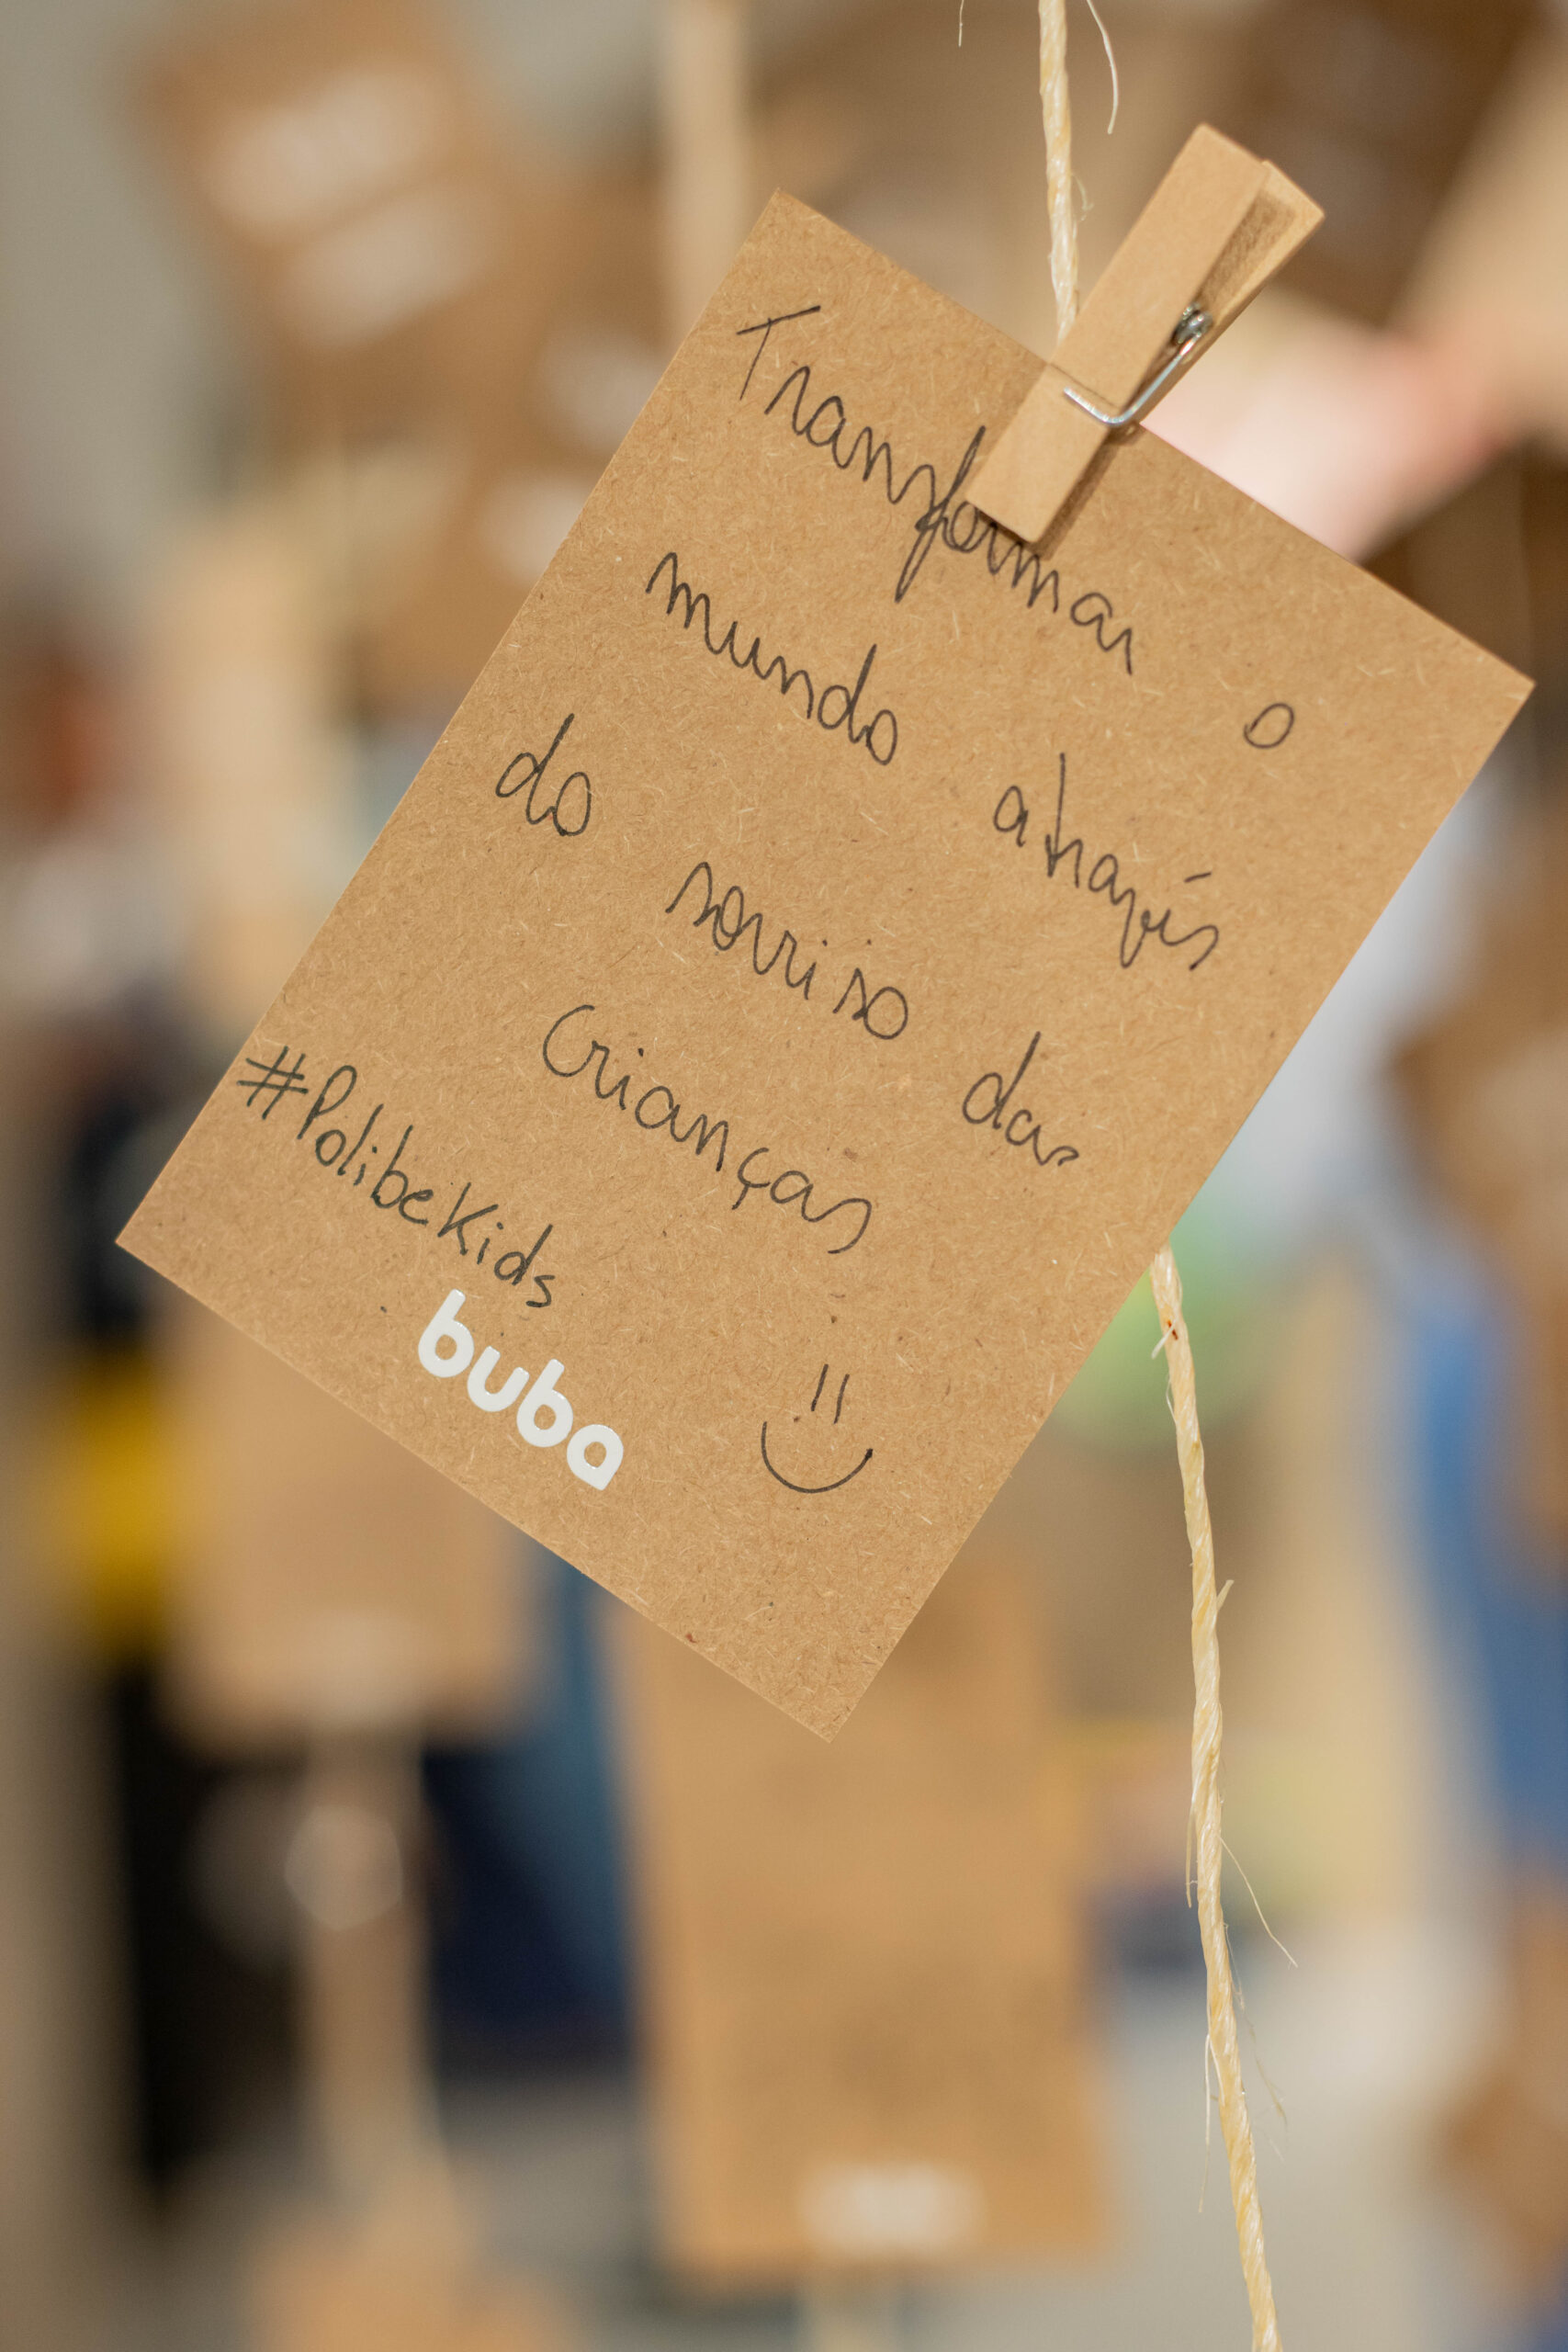 Transformar o
mundo através
do sorriso das
Crianças
#PolibeKids
buba